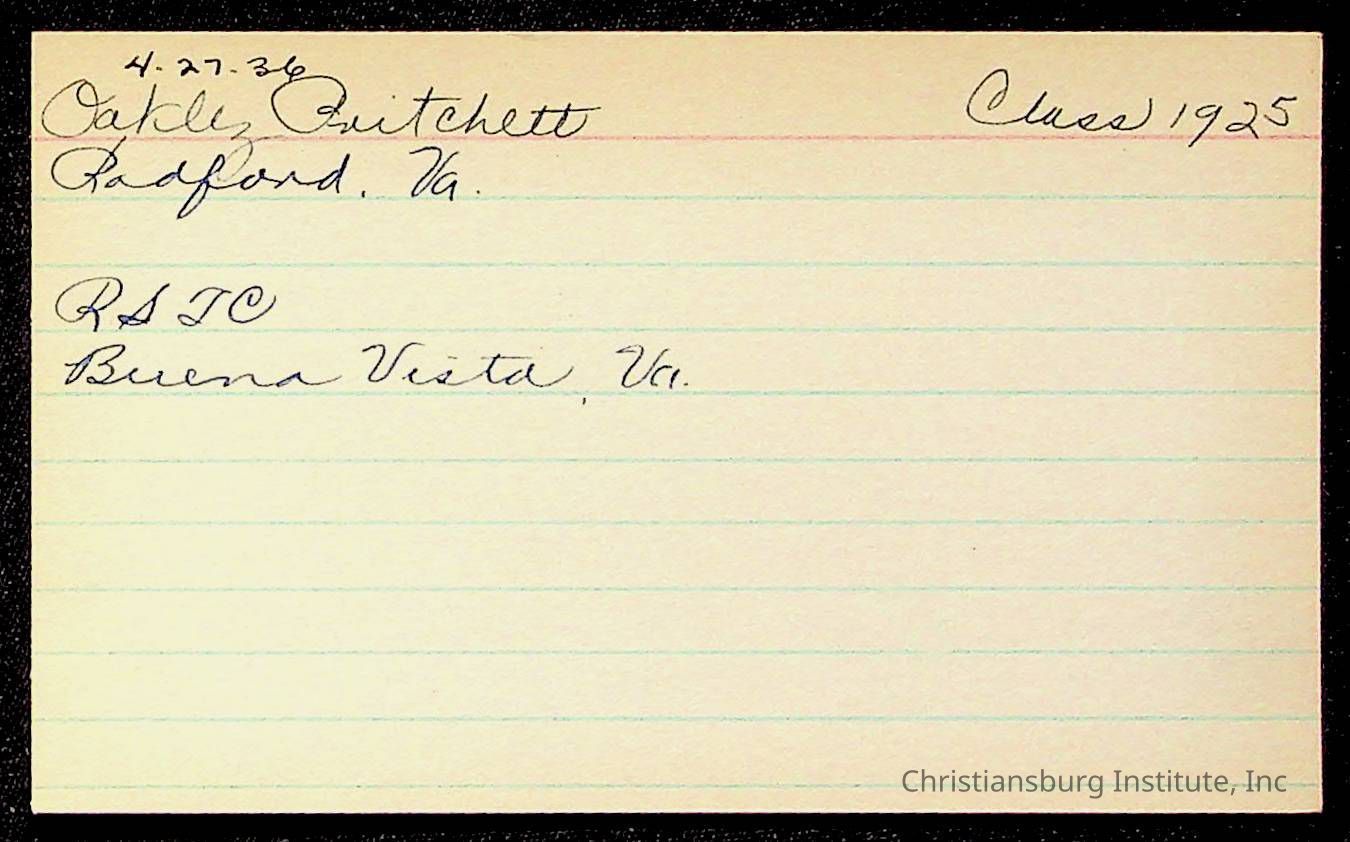 4-27-36
Oakley Pritchett Class 1925
Radford, Va.
R S T C
Buena Vista, Va.
Christiansburg Institute, Inc